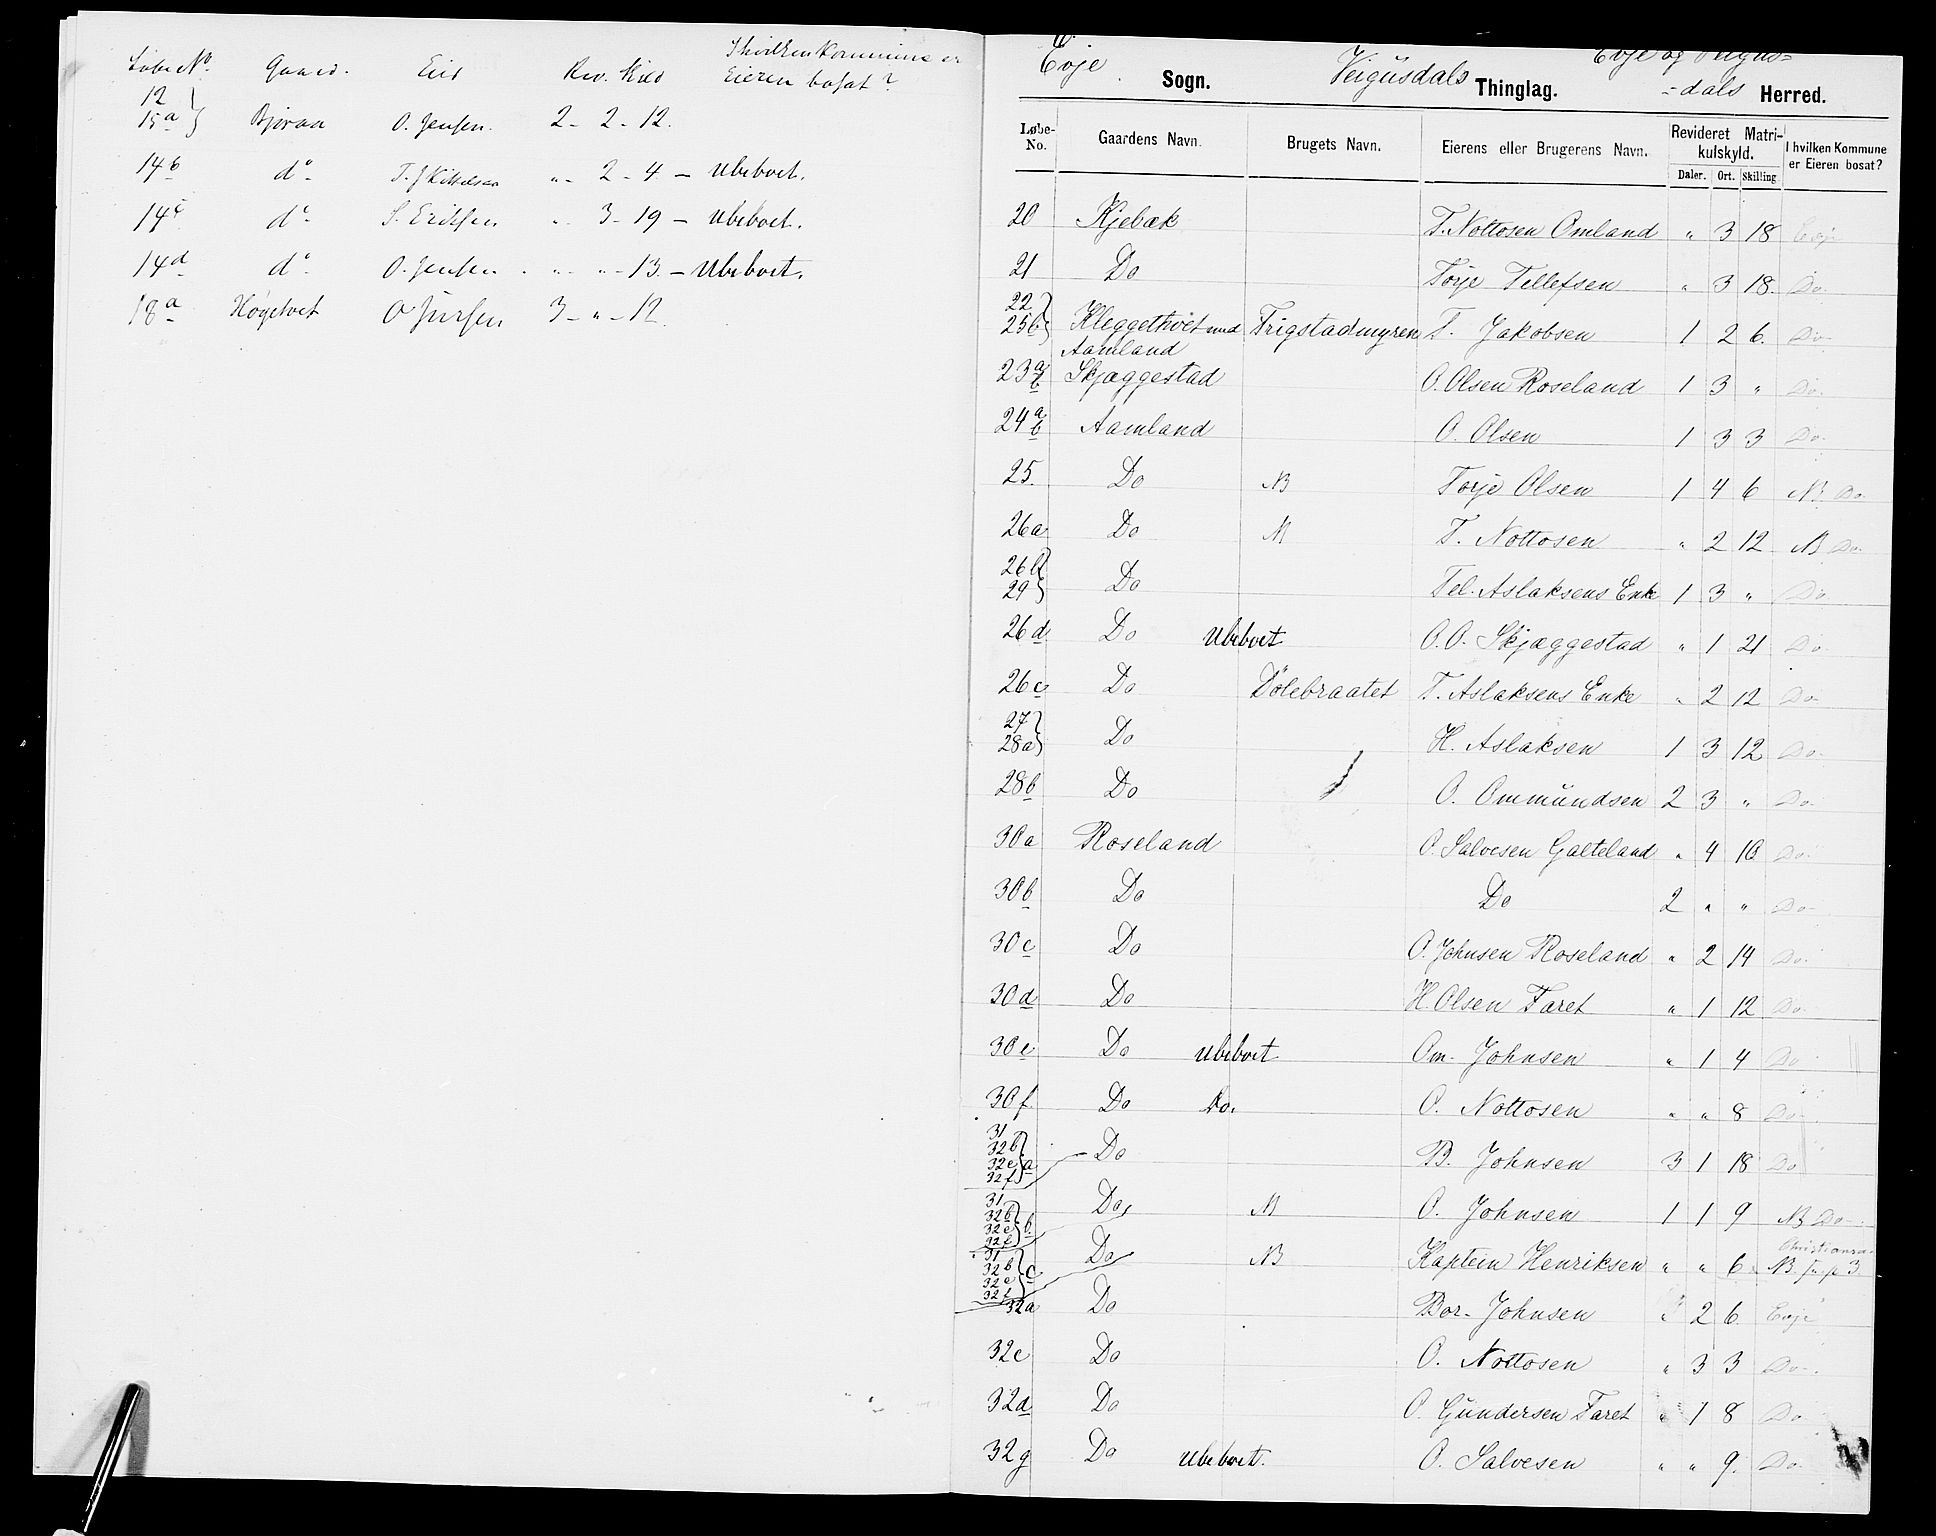 Løbe No. Gaard. Eier Rev. Skld I hvilken Kommune er Eieren bosat?
12 }
15a } Bjoraa O. Jensen. 2 - 2 - 12.
14b do - T. J Kittelsen " - 2 - 4 - Ubeboet.
14c do - S. Eriksen " - 3 - 19 - Ubeboet.
14d do - O. Jensen - " - " - 13 - Ubeboet.
18a Høgetvet O Jensen 3 - " - 12
Evje Sogn. Veigusdals Thinglag. Evje og Veigus=
=dals Herred.
Løbe-No. Gaardens Navn. Brugets Navn. Eierens eller Brugerens Navn. Revideret Matrikulskyld. I hvilken Kommune er Eieren bosat?
Daler. Ort. Skilling
20 Kjebæk T. Nottosen Omland " 3 18 Evje
21 Do Torje Tellefsen " 3 18. Do
22 }
25b } Kleggethvet med Aamland Trigstadmyren T. Jakobsen 1 2 6. Do
23 a b Skjæggestad O. Olsen Roseland 1 3 " Do
24 a b Aamland O. Olsen 1 3 3 Do
25. Do NB Torje Olsen 1 4 6 NB Do
26a Do NB T. Nottosen " 2 12 NB Do
26b }
29 } Do Tel. Aslaksens Enke 1 3 " Do
26d Do Ubeboet O. O. Skjæggestad " 1 21 Do
26c Do Dölebraatet T. Aslaksens Enke " 2 12 Do
27 }
28a } Do H. Aslaksen 1 3 12 Do
28b Do O. Ommundsen 2 3 " Do
30a Roseland O. Salvesen Galteland " 4 10 Do
30b Do Do 2 " " Do
30c Do O. Johnsen Roseland " 2 14 Do
30d Do H. Olsen Faret " 1 12 Do
30e Do Ubeboet Om. Johnsen " 1 4 Do
30f Do Do. O. Nottosen " " 8 Do
31
32b
32e } a
32f Do B. Johnsen 3 1 18 Do
31
32b
32e } b
32f Do NB O. Johnsen 1 1 9 NB Do
31
32b
32e } c
32f Do NB Kaptein Henriksen " " 6 NB Christiansa
32a Do Bor. Johnsen " 2 6. Evje
32c Do O. Nottosen " 3 3 Do
32d Do O. Gundersen Faret " 1 8 Do
32g Do Ubeboet. O. Salvesen " " 9. Do